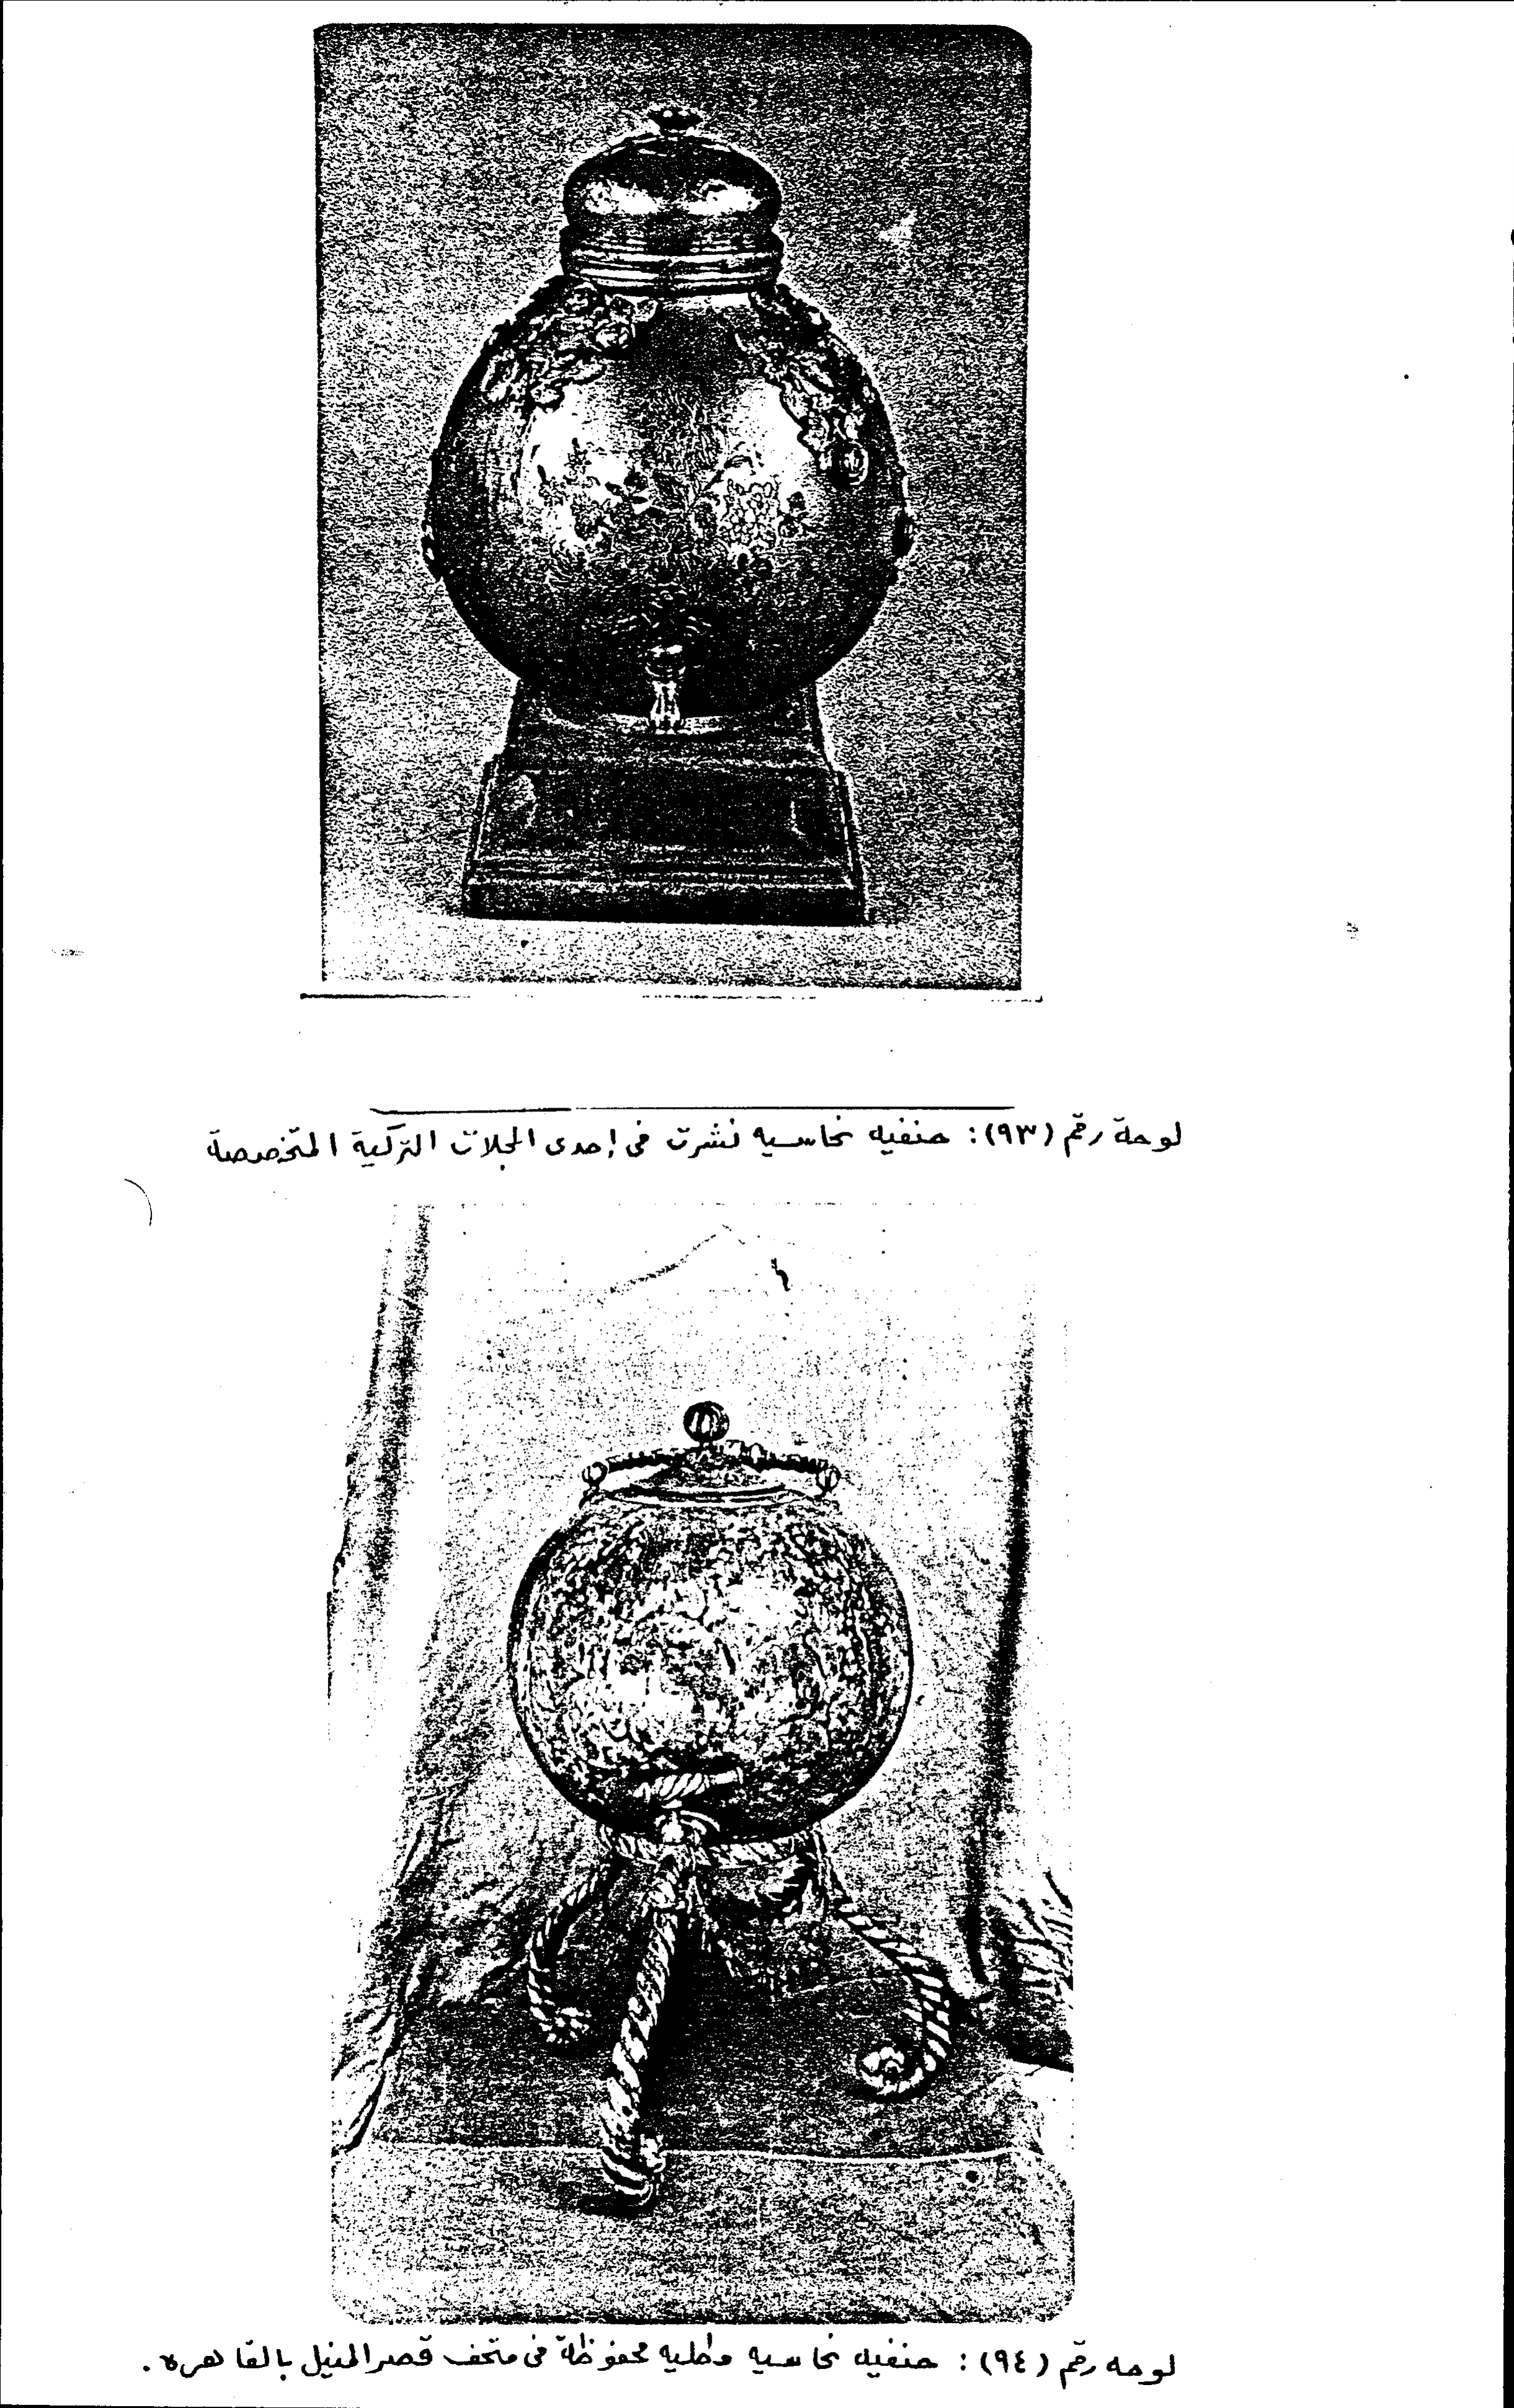 لوحة رقم (٩٣): حنفيه نحاسيه نشرت فى إحدى المجلات التركية المتخصصة
لوحه رقم (٩٤): حنفيه نحاسيه وطليه محفوظة فى متحف قصر المنيل بالقاهره.